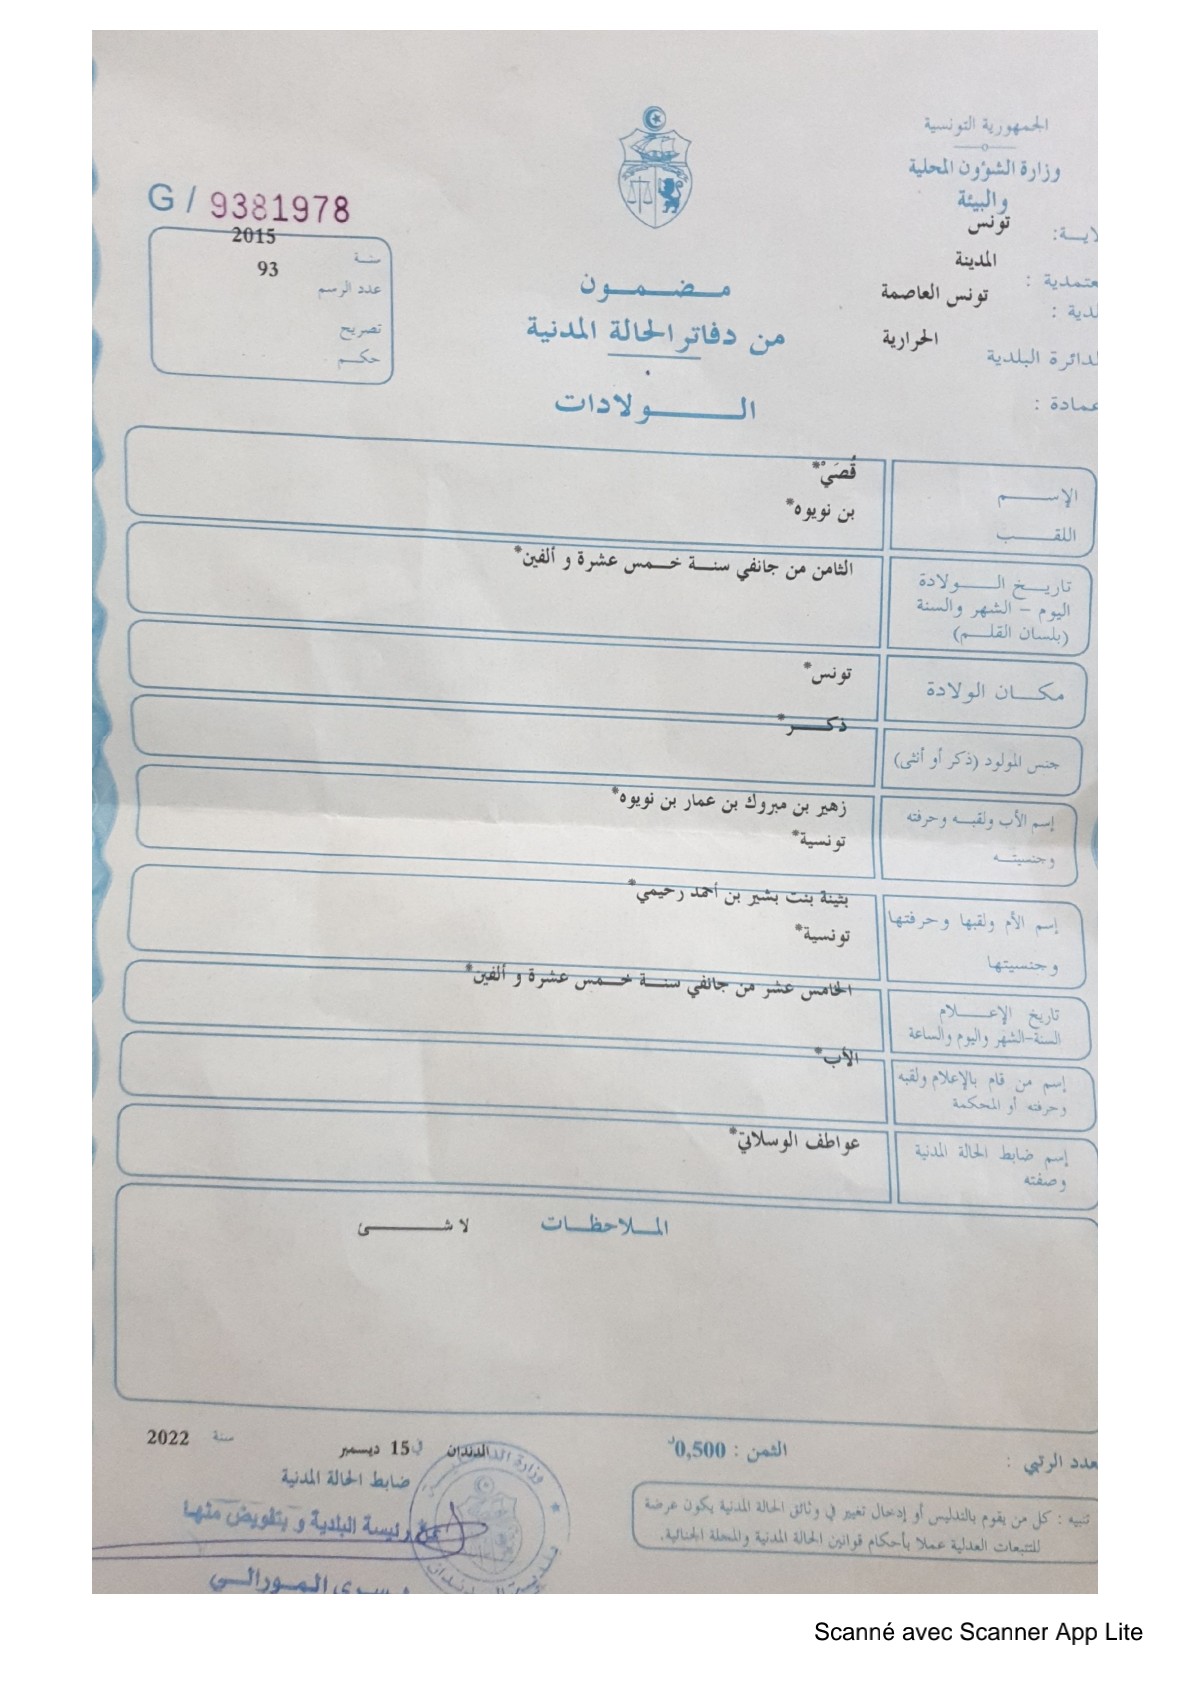 الجمهورية التونسية
وزارة الشؤون المحلية
والبيئة
لاية: تونس
عتمدية : المدينة
لدية : تونس العاصمة
لدائرة البلدية الحرارية
عمادة :
G / 9381978
سنة 2015
عدد الرسم 93
تصريح
حكم
مضمون
من دفاتر الحالة المدنية
الولادات
الإسم قُصَيْ*
اللقب بن نويوه*
تاريخ الولادة الثامن من جانفي سنة خمس عشرة و ألفين*
اليوم - الشهر والسنة
(بلسان القلم)
مكان الولادة تونس*
جنس المولود (ذكر أو أنثى) ذكر*
إسم الأب ولقبه وحرفته زهير بن مبروك بن عمار بن نويوه*
وجنسيته تونسية*
إسم الأم ولقبها وحرفتها بثينة بنت بشير بن أحمد رحيمي*
وجنسيتها تونسية*
تاريخ الإعلام الخامس عشر من جانفي سنة خمس عشرة و ألفين*
السنة-الشهر واليوم والساعة
إسم من قام بالإعلام ولقبه الأب*
وحرفته أو المحكمة
إسم ضابط الحالة المدنية عواطف الوسلاتي*
وصفته
الملاحظات لا شئ
عدد الرتبي :
الثمن : 0,500د
الدندان في 15 ديسمبر سنة 2022
ضابط الحالة المدنية
عن رئيسة البلدية و بتفويض منها
يسرى المورالي
تنبيه : كل من يقوم بالتدليس أو إدخال تغيير في وثائق الحالة المدنية يكون عرضة
للتتبعات العدلية عملا بأحكام قوانين الحالة المدنية والمجلة الجنائية.
Scanné avec Scanner App Lite